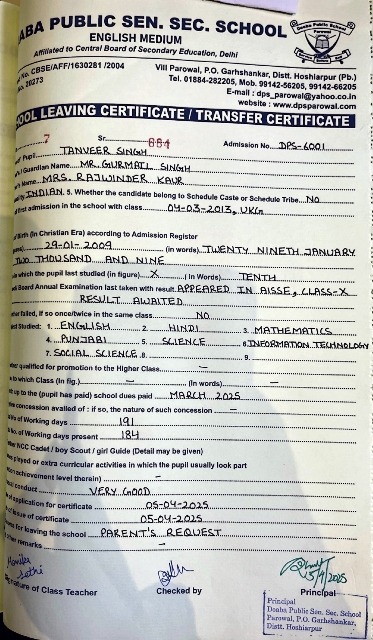 DOABA PUBLIC SEN. SEC. SCHOOL
ENGLISH MEDIUM
Affiliated to Central Board of Secondary Education, Delhi
No. CBSE/AFF/1630281 /2004
Vill Parowal, P.O. Garhshankar, Distt. Hoshiarpur (Pb.)
Tel. 01884-282205, Mob. 99142-56205, 99142-66205
E-mail : dps_parowal@yahoo.co.in
website : www.dpsparowal.com
OOL LEAVING CERTIFICATE / TRANSFER CERTIFICATE
7 Sr. 684 Admission No. DPS-6001
Pupil TANVEER SINGH
Guardian Name MR. GURMAIL SINGH
Name MRS. RAJWINDER KAUR
INDIAN 5. Whether the candidate belong to Schedule Caste or Schedule Tribe NO
first admission in the school with class 04-03-2013, UKG
Birth (In Christian Era) according to Admission Register
29-01-2009 (in words) TWENTY NINETH JANUARY
TWO THOUSAND AND NINE
in which the pupil last studied (in figure) X (In Words) TENTH
Board Annual Examination last taken with result APPEARED IN AISSE, CLASS-X
RESULT AWAITED
failed, if so once/twice in the same class NO
Studied: 1. ENGLISH 2. HINDI 3. MATHEMATICS
4. PUNJABI 5. SCIENCE 6. INFORMATION TECHNOLOGY
7. SOCIAL SCIENCE 8. 9.
qualified for promotion to the Higher Class –
to which Class (In fig.) – (In words) –
up to the (pupil has paid) school dues paid MARCH 2025
concession availed of : if so, the nature of such concession –
of Working days 191
No. of Working days present 184
NCC Cadet / boy Scout / girl Guide (Detail may be given)
played or extra curricular activities in which the pupil usually look part
achievement level therein) –
conduct VERY GOOD
application for certificate 05-04-2025
issue of certificate 05-04-2025
for leaving the school PARENT'S REQUEST
remarks –
Signature of Class Teacher
Checked by
Principal
Principal
Doaba Public Sen. Sec. School
Parowal, P.O. Garhshankar,
Distt. Hoshiarpur